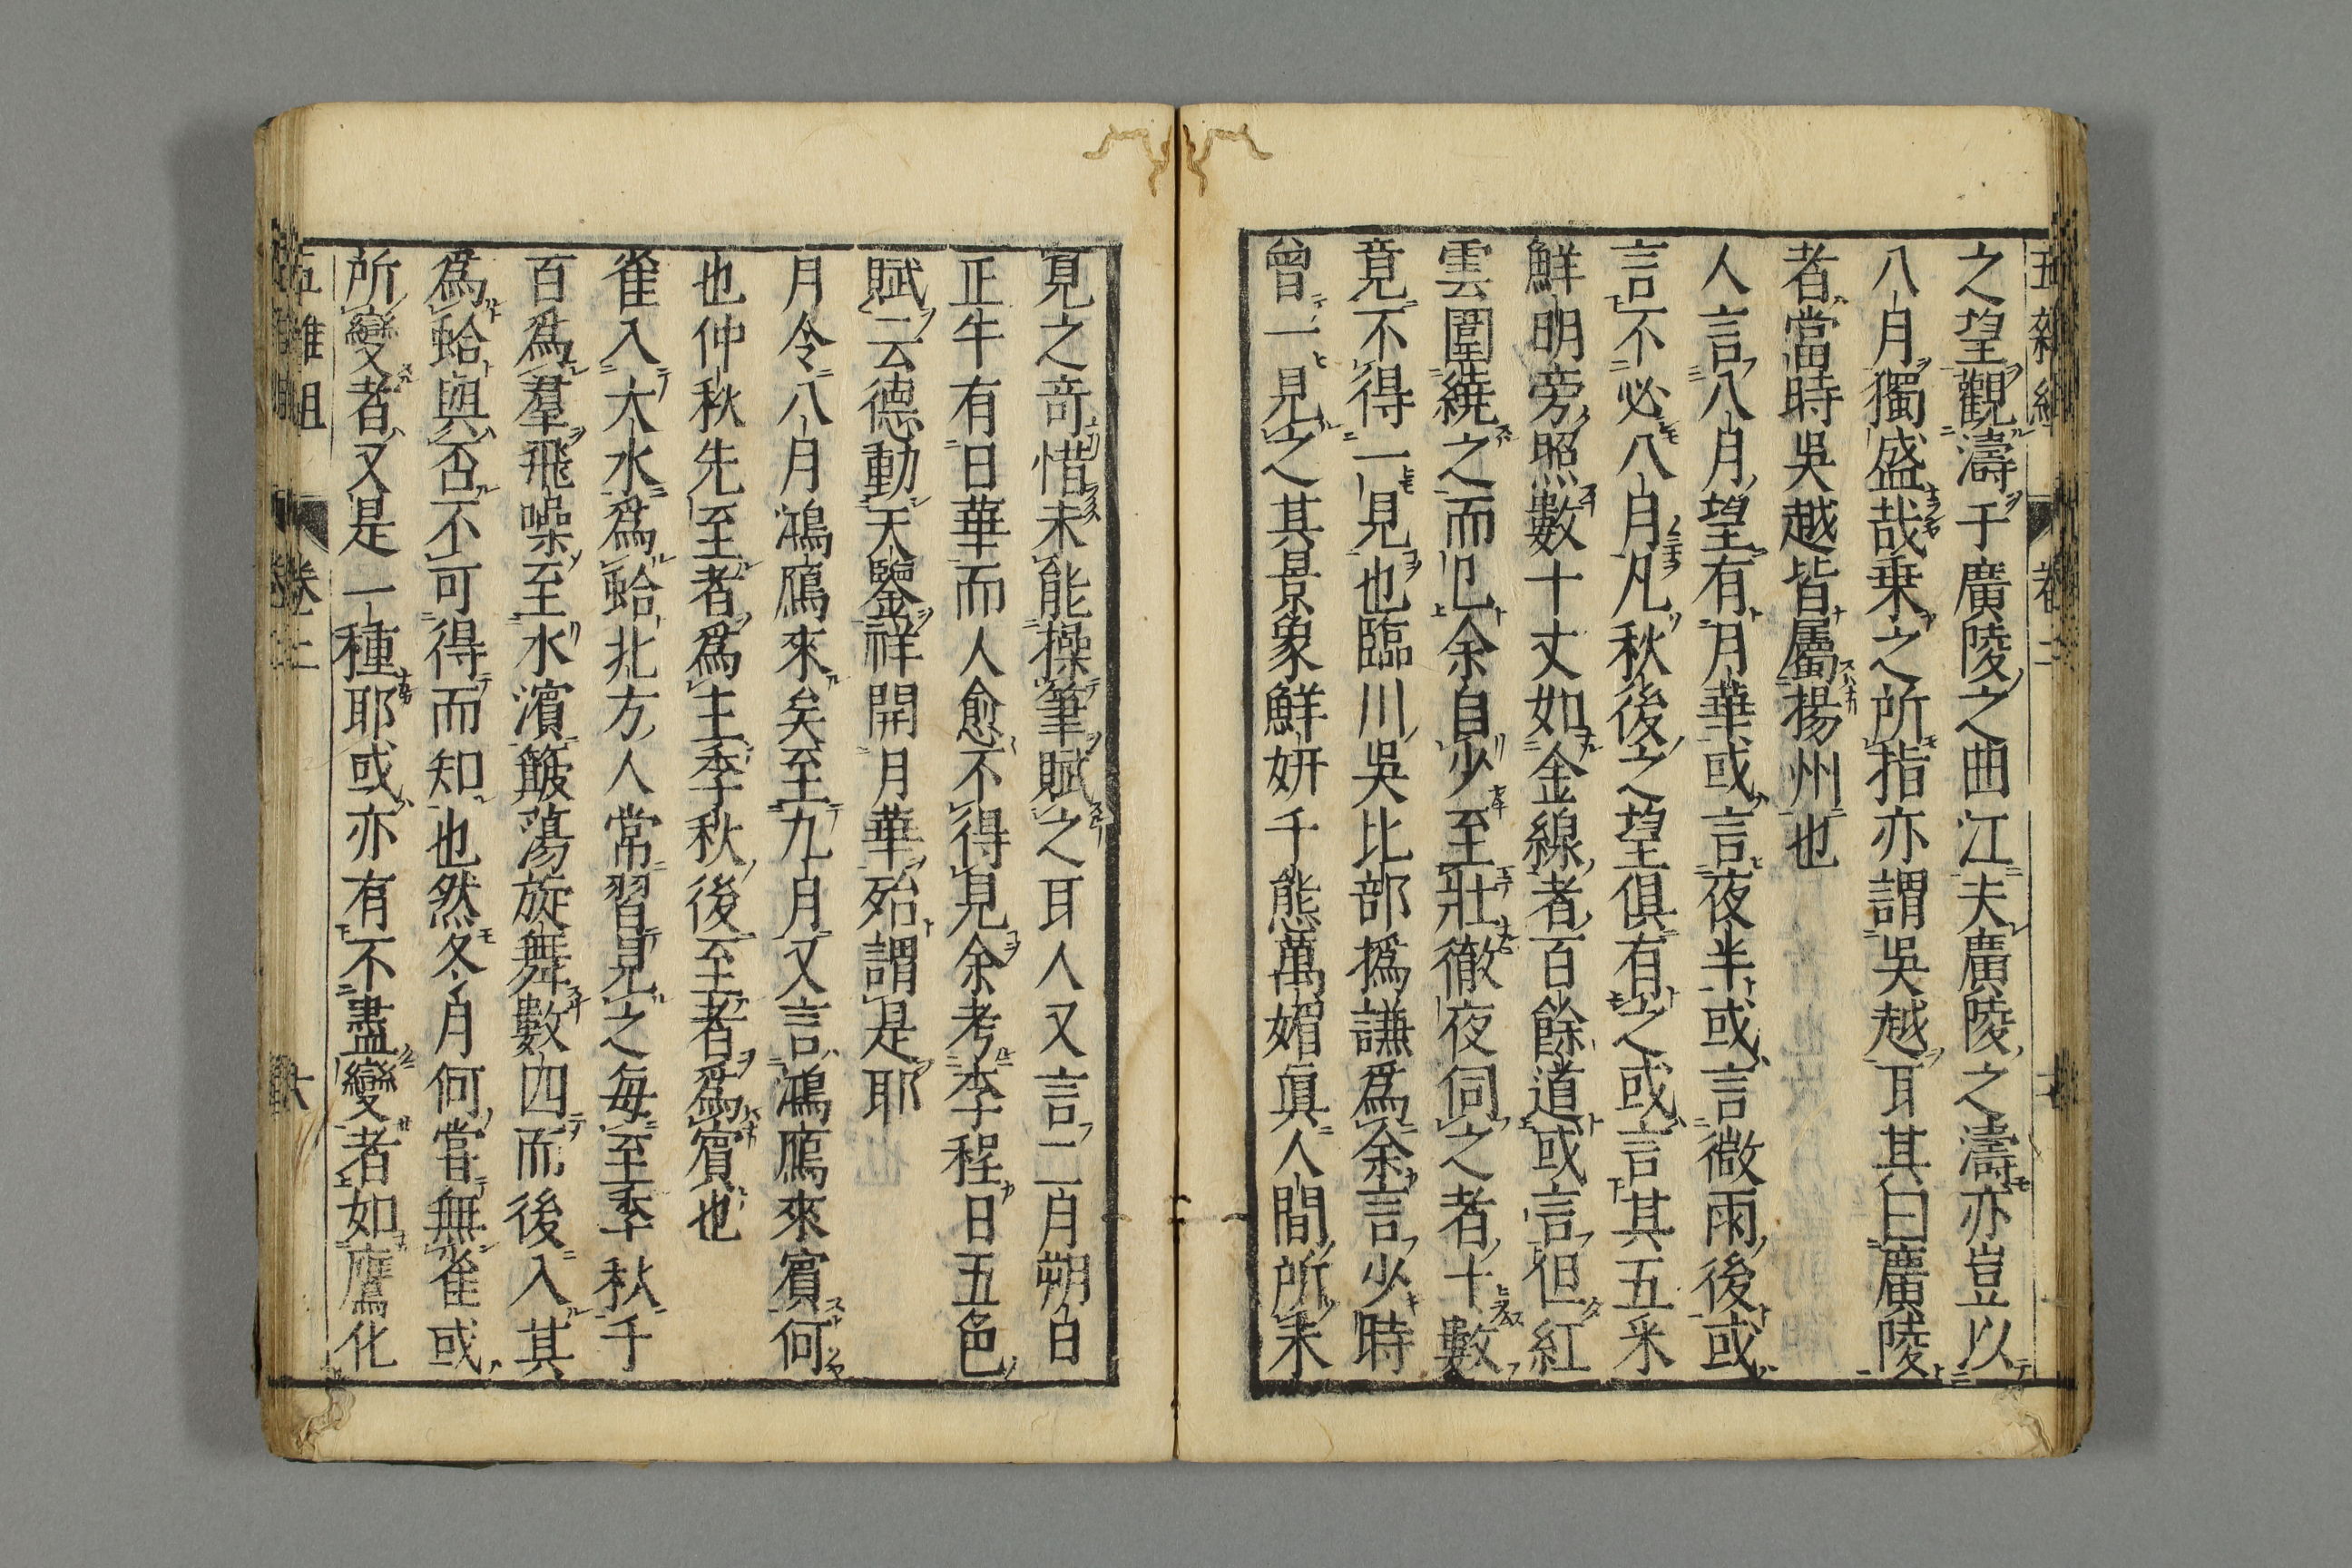 之望觀濤于廣陵之曲江夫廣陵之濤亦豈以
八月獨盛哉乗之所指亦謂吳越耳其曰廣陵
者當時吳越皆屬揚州也
人言八月望有月華或言夜半或言微雨後或
言不必八月凡秋後之望俱有之或言其五采
鮮明旁照數十丈如金線者百餘道或言但紅
雲圍繞之而已余自少至壯徹夜伺之者十數
竟不得一見也臨川吳比部撝謙為余言少時
曾一見之其景象鮮妍千態萬媚真人間所未
見之竒惜未能操筆賦之耳人又言二月朔白
正午有日華而人愈不得見余考李程日五色
賦云德動天鑒祥開月華殆謂是耶
月令八月鴻鴈來矣至九月又言鴻鴈來賓何
也仲秋先至者爲主季秋後至者爲賓也
雀入大水爲蛤北方人常習見之每至季秋千
百爲羣飛噪至水濱簸蕩旋舞數四而後入其
爲蛤與否不可得而知也然冬月何嘗無雀或
所變者又是一種耶或亦有不盡變者如鷹化
五雜組 卷二